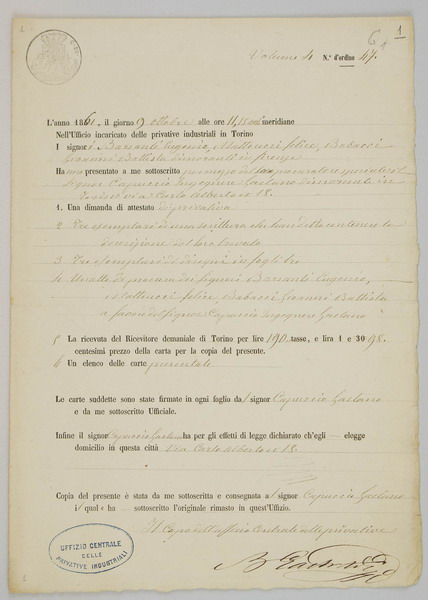 1
6
1
Volume 4 N.° d'ordine 47.
L'anno 1861, il giorno 9 Ottobre alle ore 11,15 anti meridiane
Nell'Ufficio incaricato delle privative industriali in Torino
I signori Barsanti Eugenio, Matteucci felice, Babacci
Giovanni Battista dimoranti in firenze
Hanno presentato a me sottoscritto per mezzo del procuratore
Signor Capuccio Ingegnere Gaetano dimorante in
Torino via Carlo Alberto n° 18.
1. Una dimanda di attestato di privativa
2 Tre esemplari di una scrittura che contenere la
descrizione del loro trovato
3 Tre esemplari di disegni in fogli tre
4 Un atto di procura dei signori Barsanti Eugenio,
Matteucci felice, Babacci Giovanni Battista
a favore del Signor Capuccio Ingegnere Gaetano
5 La ricevuta del Ricevitore demaniale di Torino per lire 190 tasse, e lira 1 e 30 98.
centesimi prezzo della carta per la copia del presente.
6 Un elenco delle carte presentate
Le carte suddette sono state firmate in ogni foglio dal signor Capuccio Gaetano
e da me sottoscritto Ufficiale.
Infine il signor Capuccio Gaetano ha per gli effetti di legge dichiarato ch'egli — elegge
domicilio in questa città Via Carlo Alberto n° 18.
Copia del presente è stata da me sottoscritta e consegnata al signor Capuccio Gaetano
il quale ha — sottoscritto l'originale rimasto in quest'Uffizio.
Il Capo dell'ufficio Centrale delle privative
UFFIZIO CENTRALE
DELLE
PRIVATIVE INDUSTRIALI
1